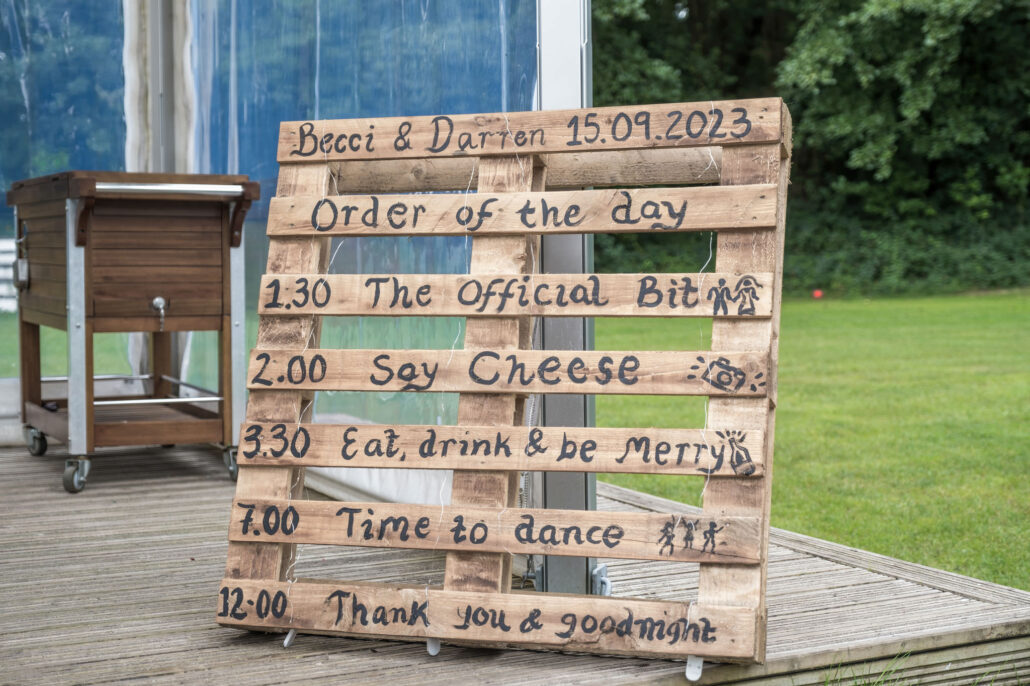 Becci & Darren 15.09.2023
Order of the day
1.30 The Official Bit
2.00 Say Cheese
3.30 Eat, drink & be Merry
7.00 Time to dance
12.00 Thank you & goodnight